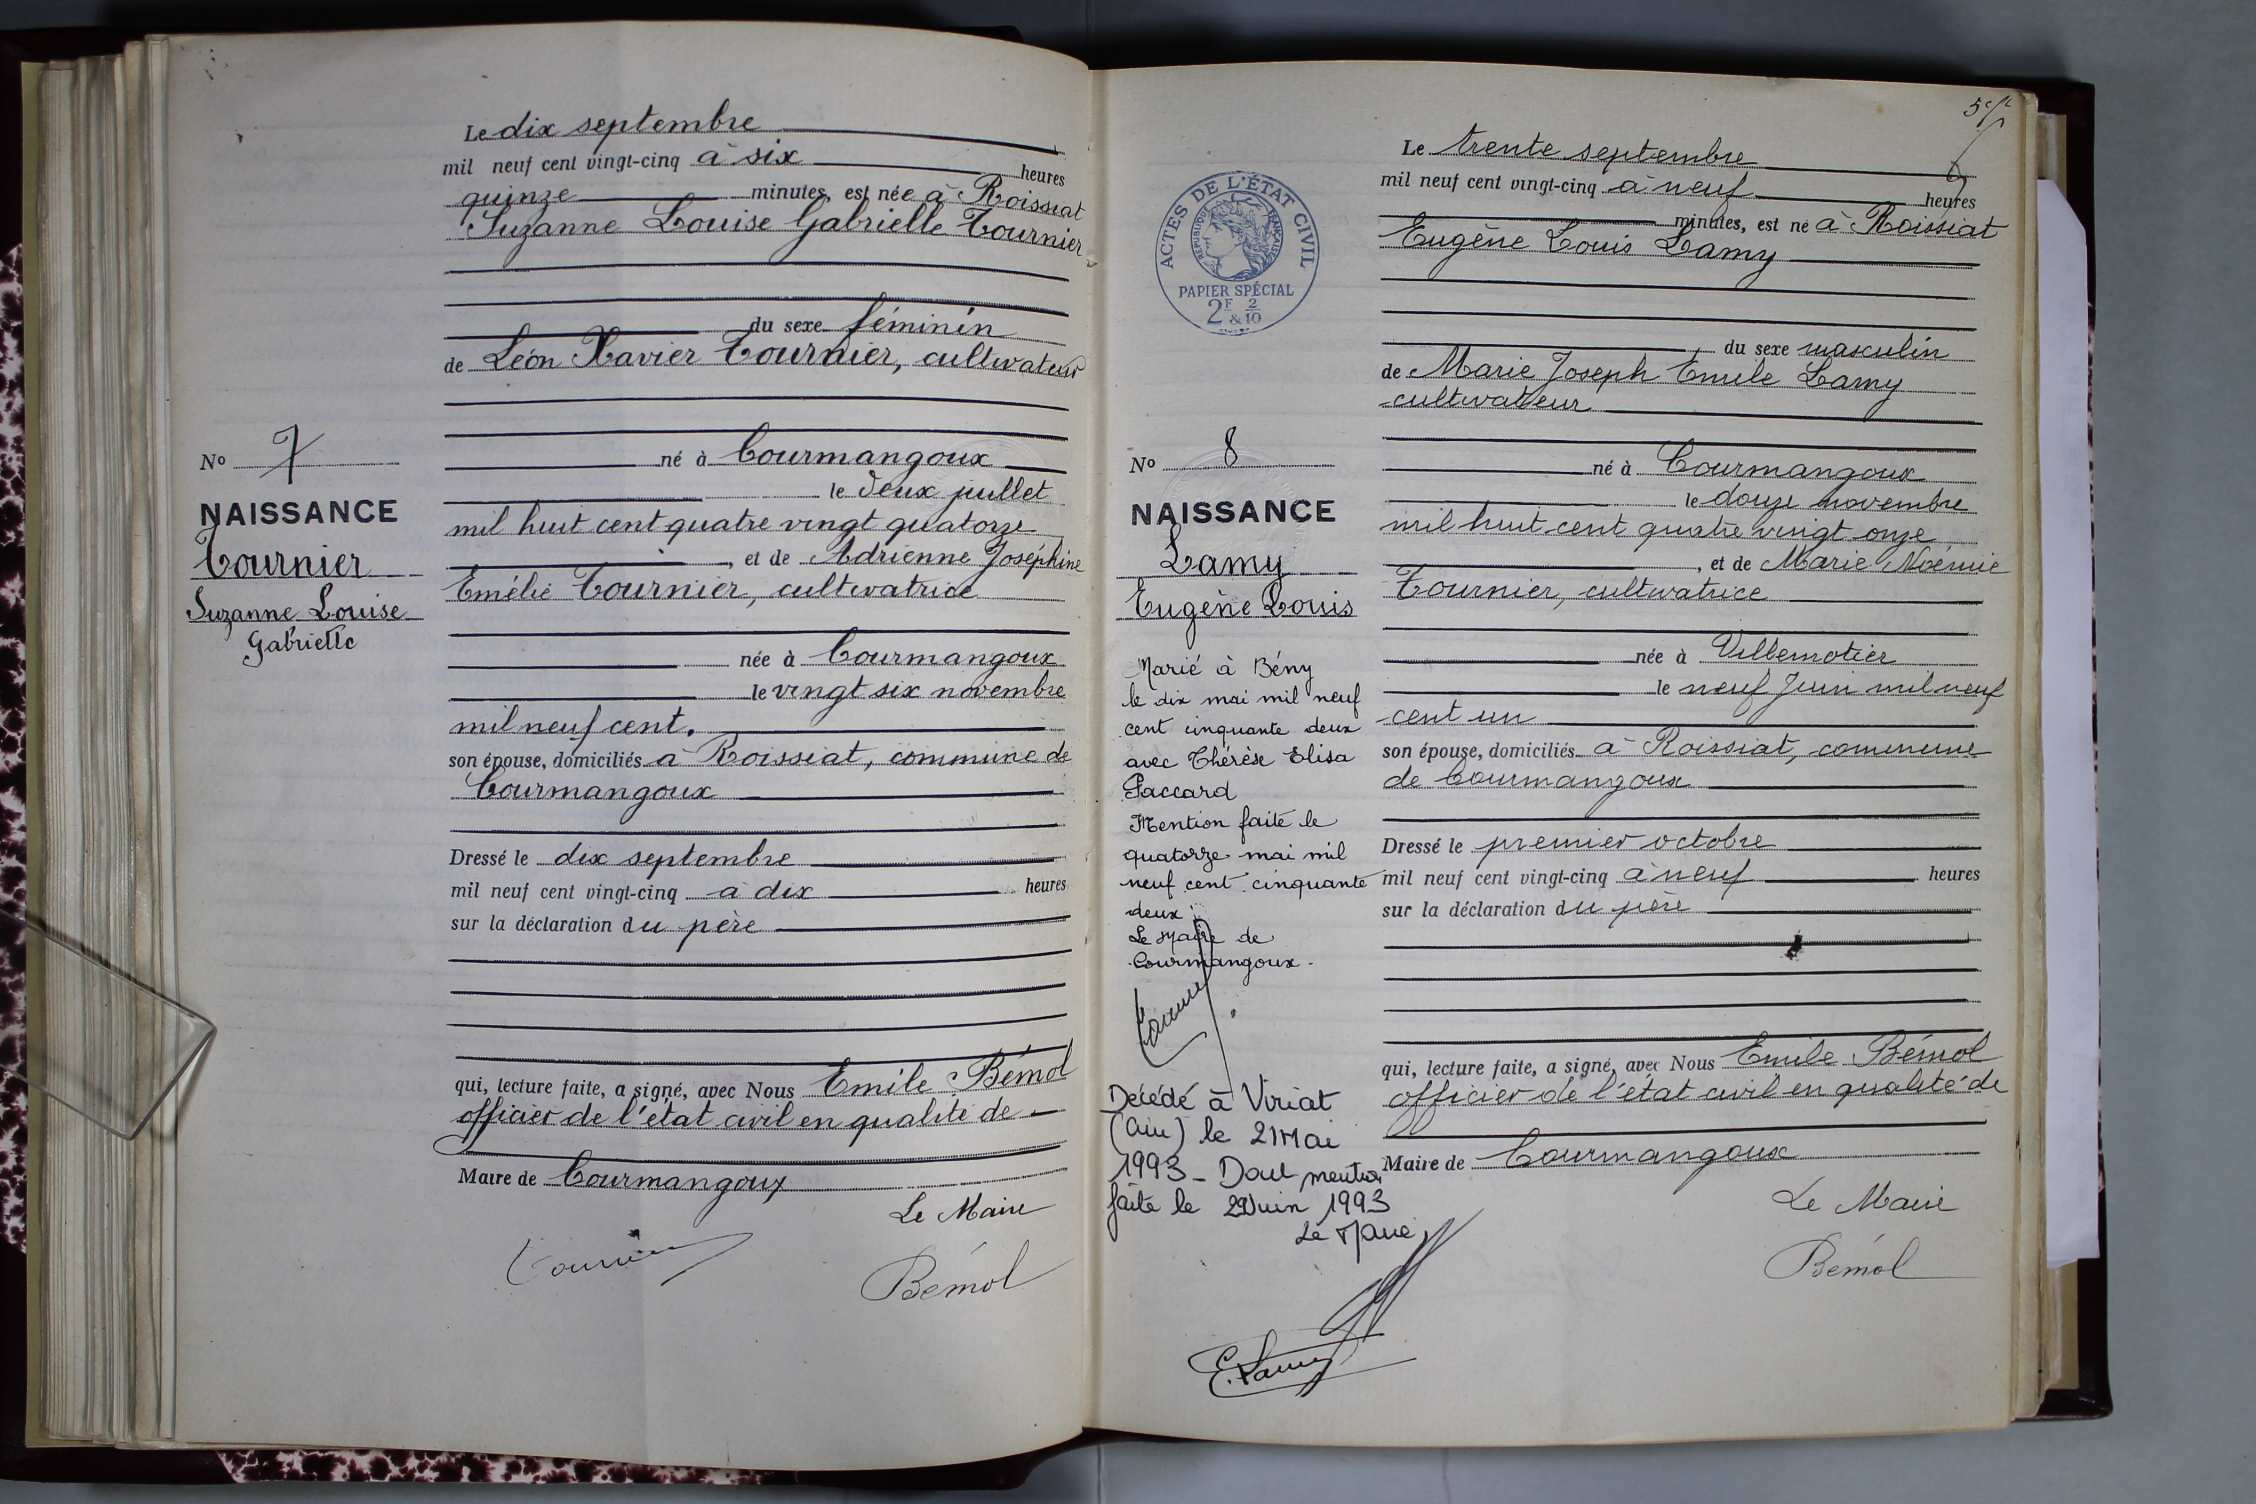 Le dix septembre
mil neuf cent vingt-cinq à six heures
quinze minutes, est née à Roissiat
Suzanne Louise Gabrielle Tournier
du sexe féminin
de Léon Xavier Tournier, cultivateur
né à Courmangoux
le deux juillet
mil huit cent quatre vingt quatorze
, et de Adrienne Joséphine
Emélie Tournier, cultivatrice
née à Courmangoux
le vingt six novembre
mil neuf cent.
son épouse, domiciliés à Roissiat, commune de
Courmangoux
Dressé le dix septembre
mil neuf cent vingt-cinq à dix heures
sur la déclaration du père
qui, lecture faite, a signé, avec Nous Emile Bémol
officier de l'état civil en qualité de
Maire de Courmangoux
Le Maire
Bémol
No 7
NAISSANCE
Tournier
Suzanne Louise
Gabrielle
ACTES DE L'ÉTAT CIVIL
RÉPUBLIQUE FRANÇAISE
PAPIER SPÉCIAL
2F & 2/10
No 8
NAISSANCE
Lamy
Eugène Louis
Marié à Bény
le dix mai mil neuf
cent cinquante deux
avec Thérèse Elisa
Paccard
Mention faite le
quatorze mai mil
neuf cent cinquante
deux
Le Maire de
Courmangoux.
Décédé à Viriat
(Ain) le 21 Mai
1993 - Dont mention
faite le 29 Juin 1993
Le Maire,
E. Lamy
Le trente septembre
mil neuf cent vingt-cinq à neuf heures
minutes, est né à Roissiat
Eugène Louis Lamy
du sexe masculin
de Marie Joseph Emile Lamy
cultivateur
né à Courmangoux
le douze novembre
mil huit cent quatre vingt onze
, et de Marie Noémie
Tournier, cultivatrice
née à Villemotier
le neuf Juin mil neuf
cent un
son épouse, domiciliés à Roissiat, commune
de Courmangoux
Dressé le premier octobre
mil neuf cent vingt-cinq à neuf heures
sur la déclaration du père
qui, lecture faite, a signé, avec Nous Emile Bémol
officier de l'état civil en qualité de
Maire de Courmangoux
Le Maire
Bémol